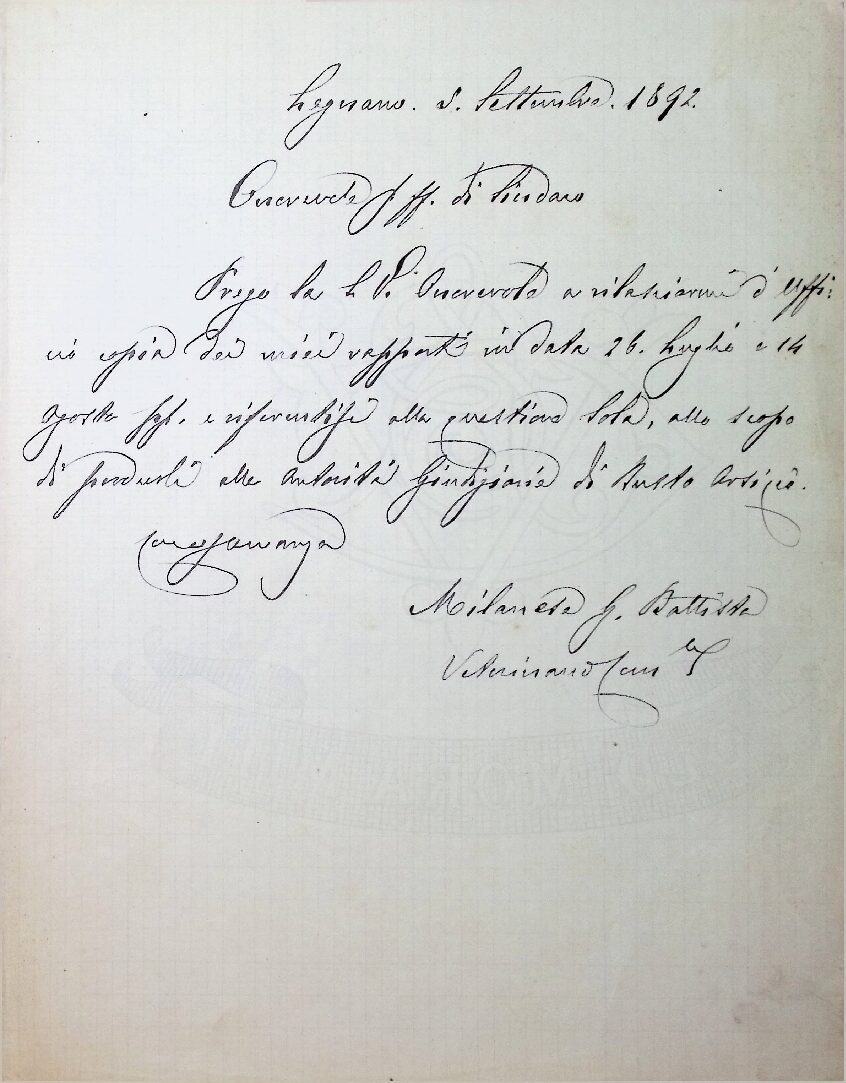 Legnano. 5. Settembre. 1892.
Onorevole f ff. di Sindaco
Prego la S. V. Onorevole a rilasciarmi d'Uffi:
cio copia dei miei rapporti in data 26. Luglio e 14
Agosto e riferentisi alla questione Sola, allo scopo
di produrli alle Autorità Giudiziarie di Busto Arsizio.
Con osservanza
Milanese G. Battista
Veterinario Com.le